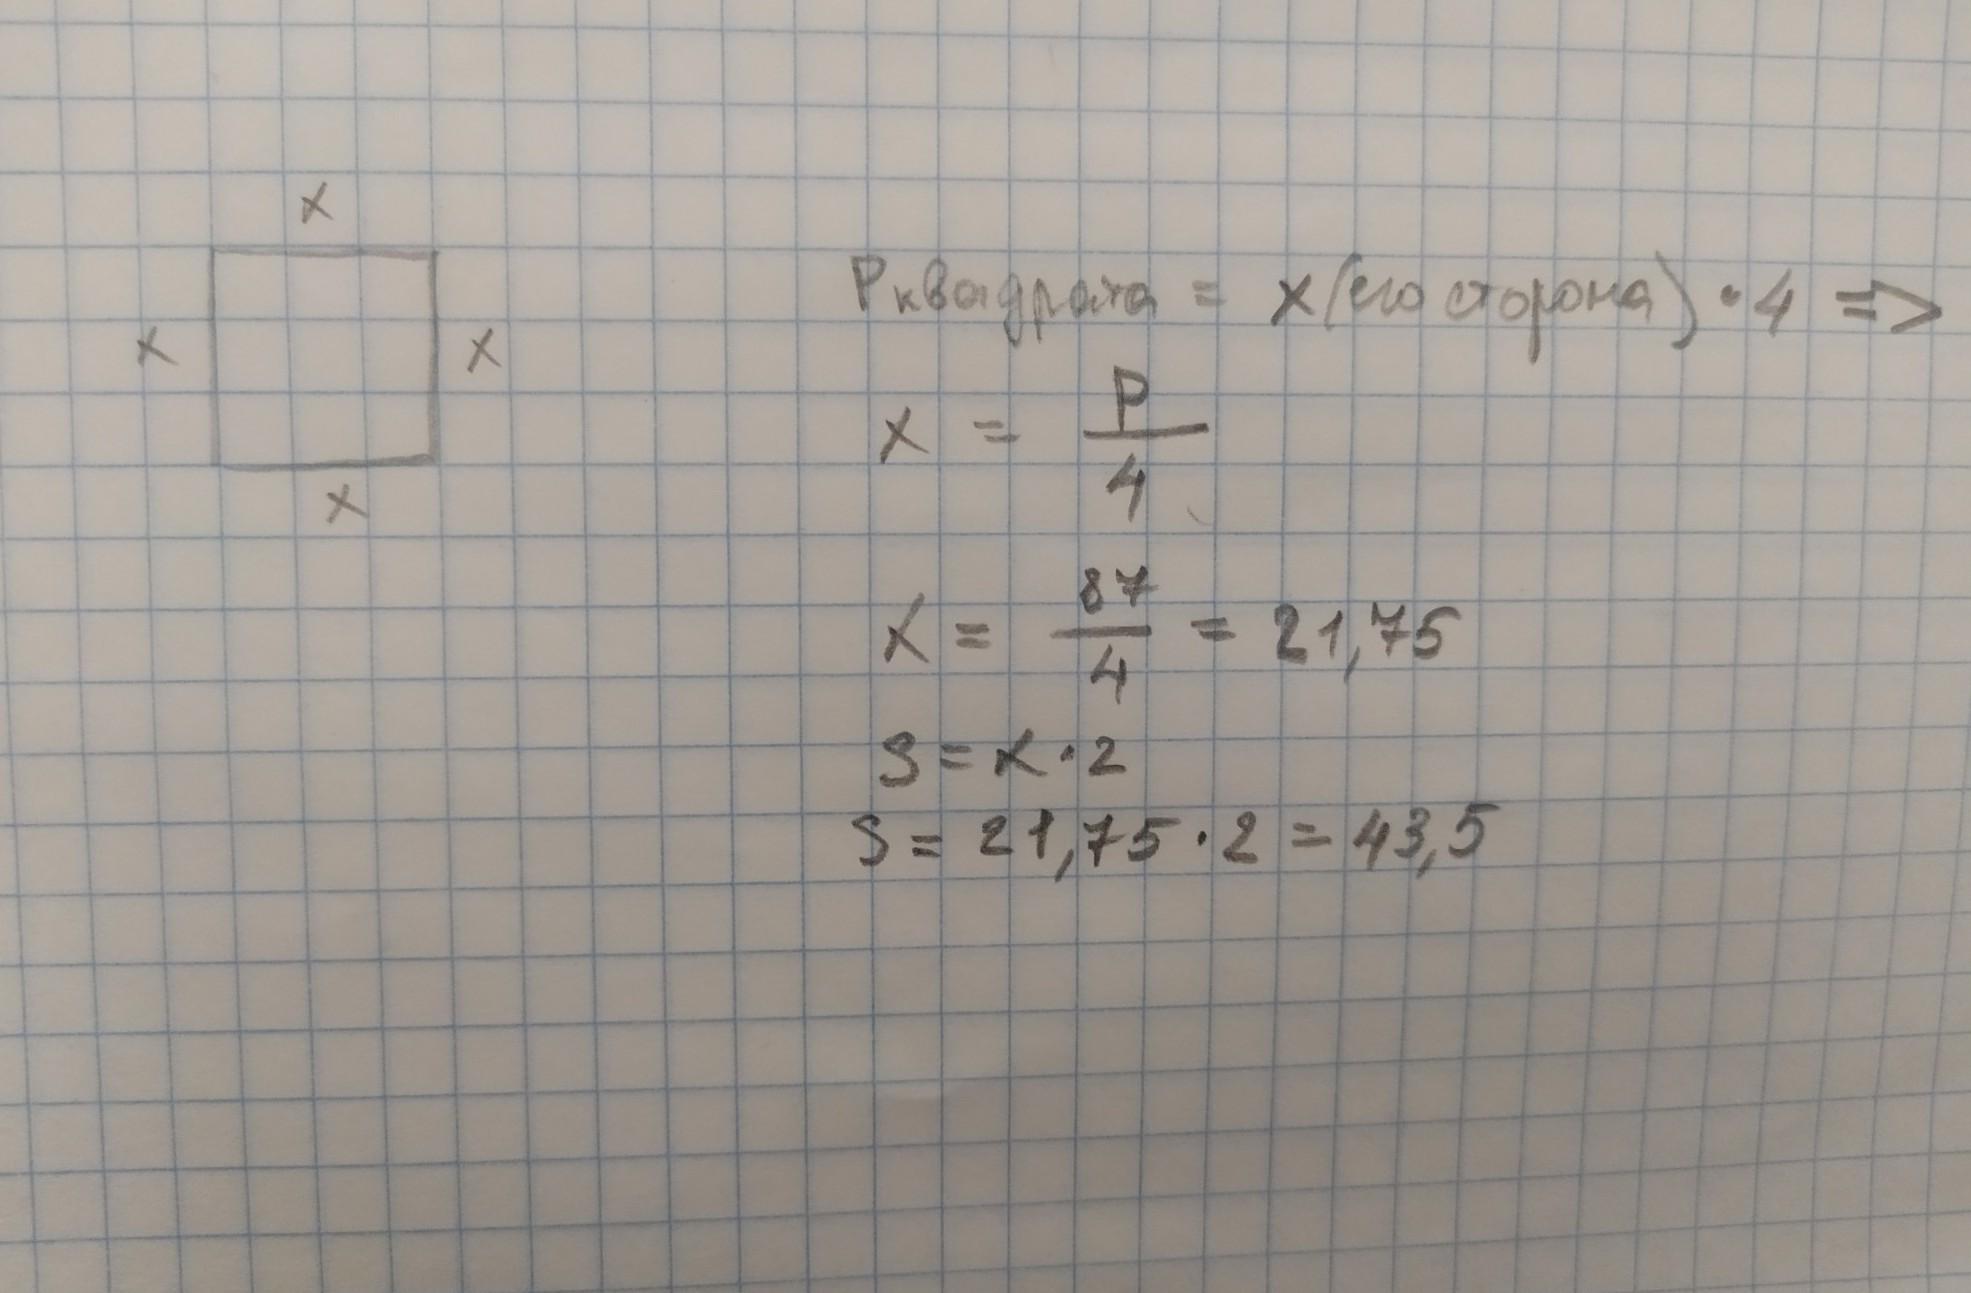 x
x
x
x
Pквадрата = x(его сторона) · 4 =>
x = P/4
x = 87/4 = 21,75
S = x · 2
S = 21,75 · 2 = 43,5